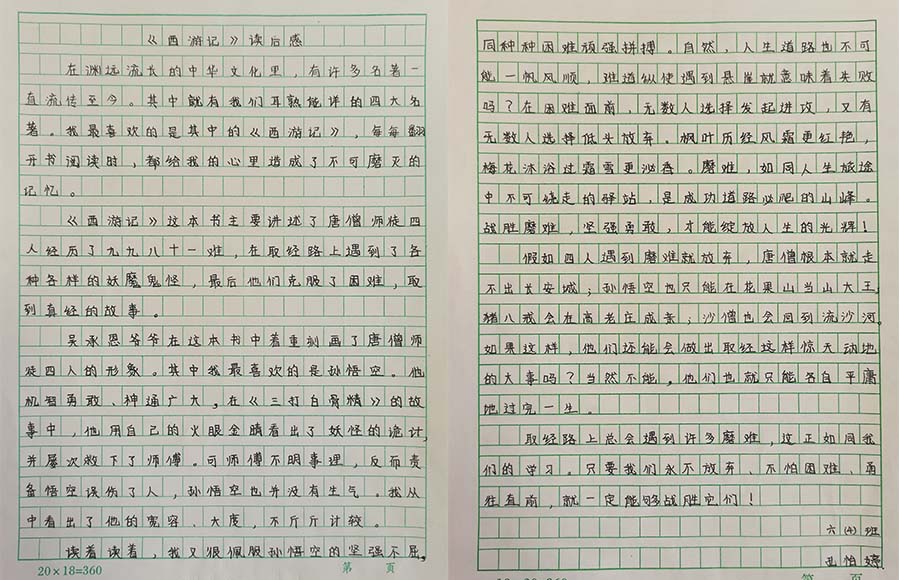 《西游记》读后感
在渊远流长的中华文化里，有许多名著一
直流传至今。其中就有我们耳熟能详的四大名
著。我最喜欢的是其中的《西游记》，每每翻
开书阅读时，都给我的心里造成了不可磨灭的
记忆。
《西游记》这本书主要讲述了唐僧师徒四
人经历了九九八十一难，在取经路上遇到了各
种各样的妖魔鬼怪，最后他们克服了困难，取
到真经的故事。
吴承恩爷爷在这本书中着重刻画了唐僧师
徒四人的形象。其中我最喜欢的是孙悟空。他
机智勇敢、神通广大，在《三打白骨精》的故
事中，他用自己的火眼金睛看出了妖怪的诡计，
并屡次救下了师傅。可师傅不明事理，反而责
备悟空误伤了人，孙悟空也并没有生气。我从
中看出了他的宽容、大度，不斤斤计较。
读着读着，我又很佩服孙悟空的坚强不屈，
20×18=360 第 页
同种种困难顽强拼搏。自然，人生道路也不可
能一帆风顺，难道纵使遇到悬崖就意味着失败
吗？在困难面前，无数人选择发起进攻，又有
无数人选择低头放弃。枫叶历经风霜更红艳，
梅花沐浴过霜雪更泌香。磨难，如同人生旅途
中不可绕走的驿站，是成功道路必爬的山峰。
战胜磨难，坚强勇敢，才能绽放人生的光辉！
假如四人遇到磨难就放弃，唐僧根本就走
不出长安城；孙悟空也只能在花果山当山大王，
猪八戒会在高老庄成亲；沙僧也会回到流沙河。
如果这样，他们还能会做出取经这样惊天动地
的大事吗？当然不能，他们也就只能各自平庸
地过完一生。
取经路上总会遇到许多磨难，这正如同我
们的学习。只要我们永不放弃、不怕困难、勇
往直前，就一定能够战胜它们！
六(4)班
孔怡婷